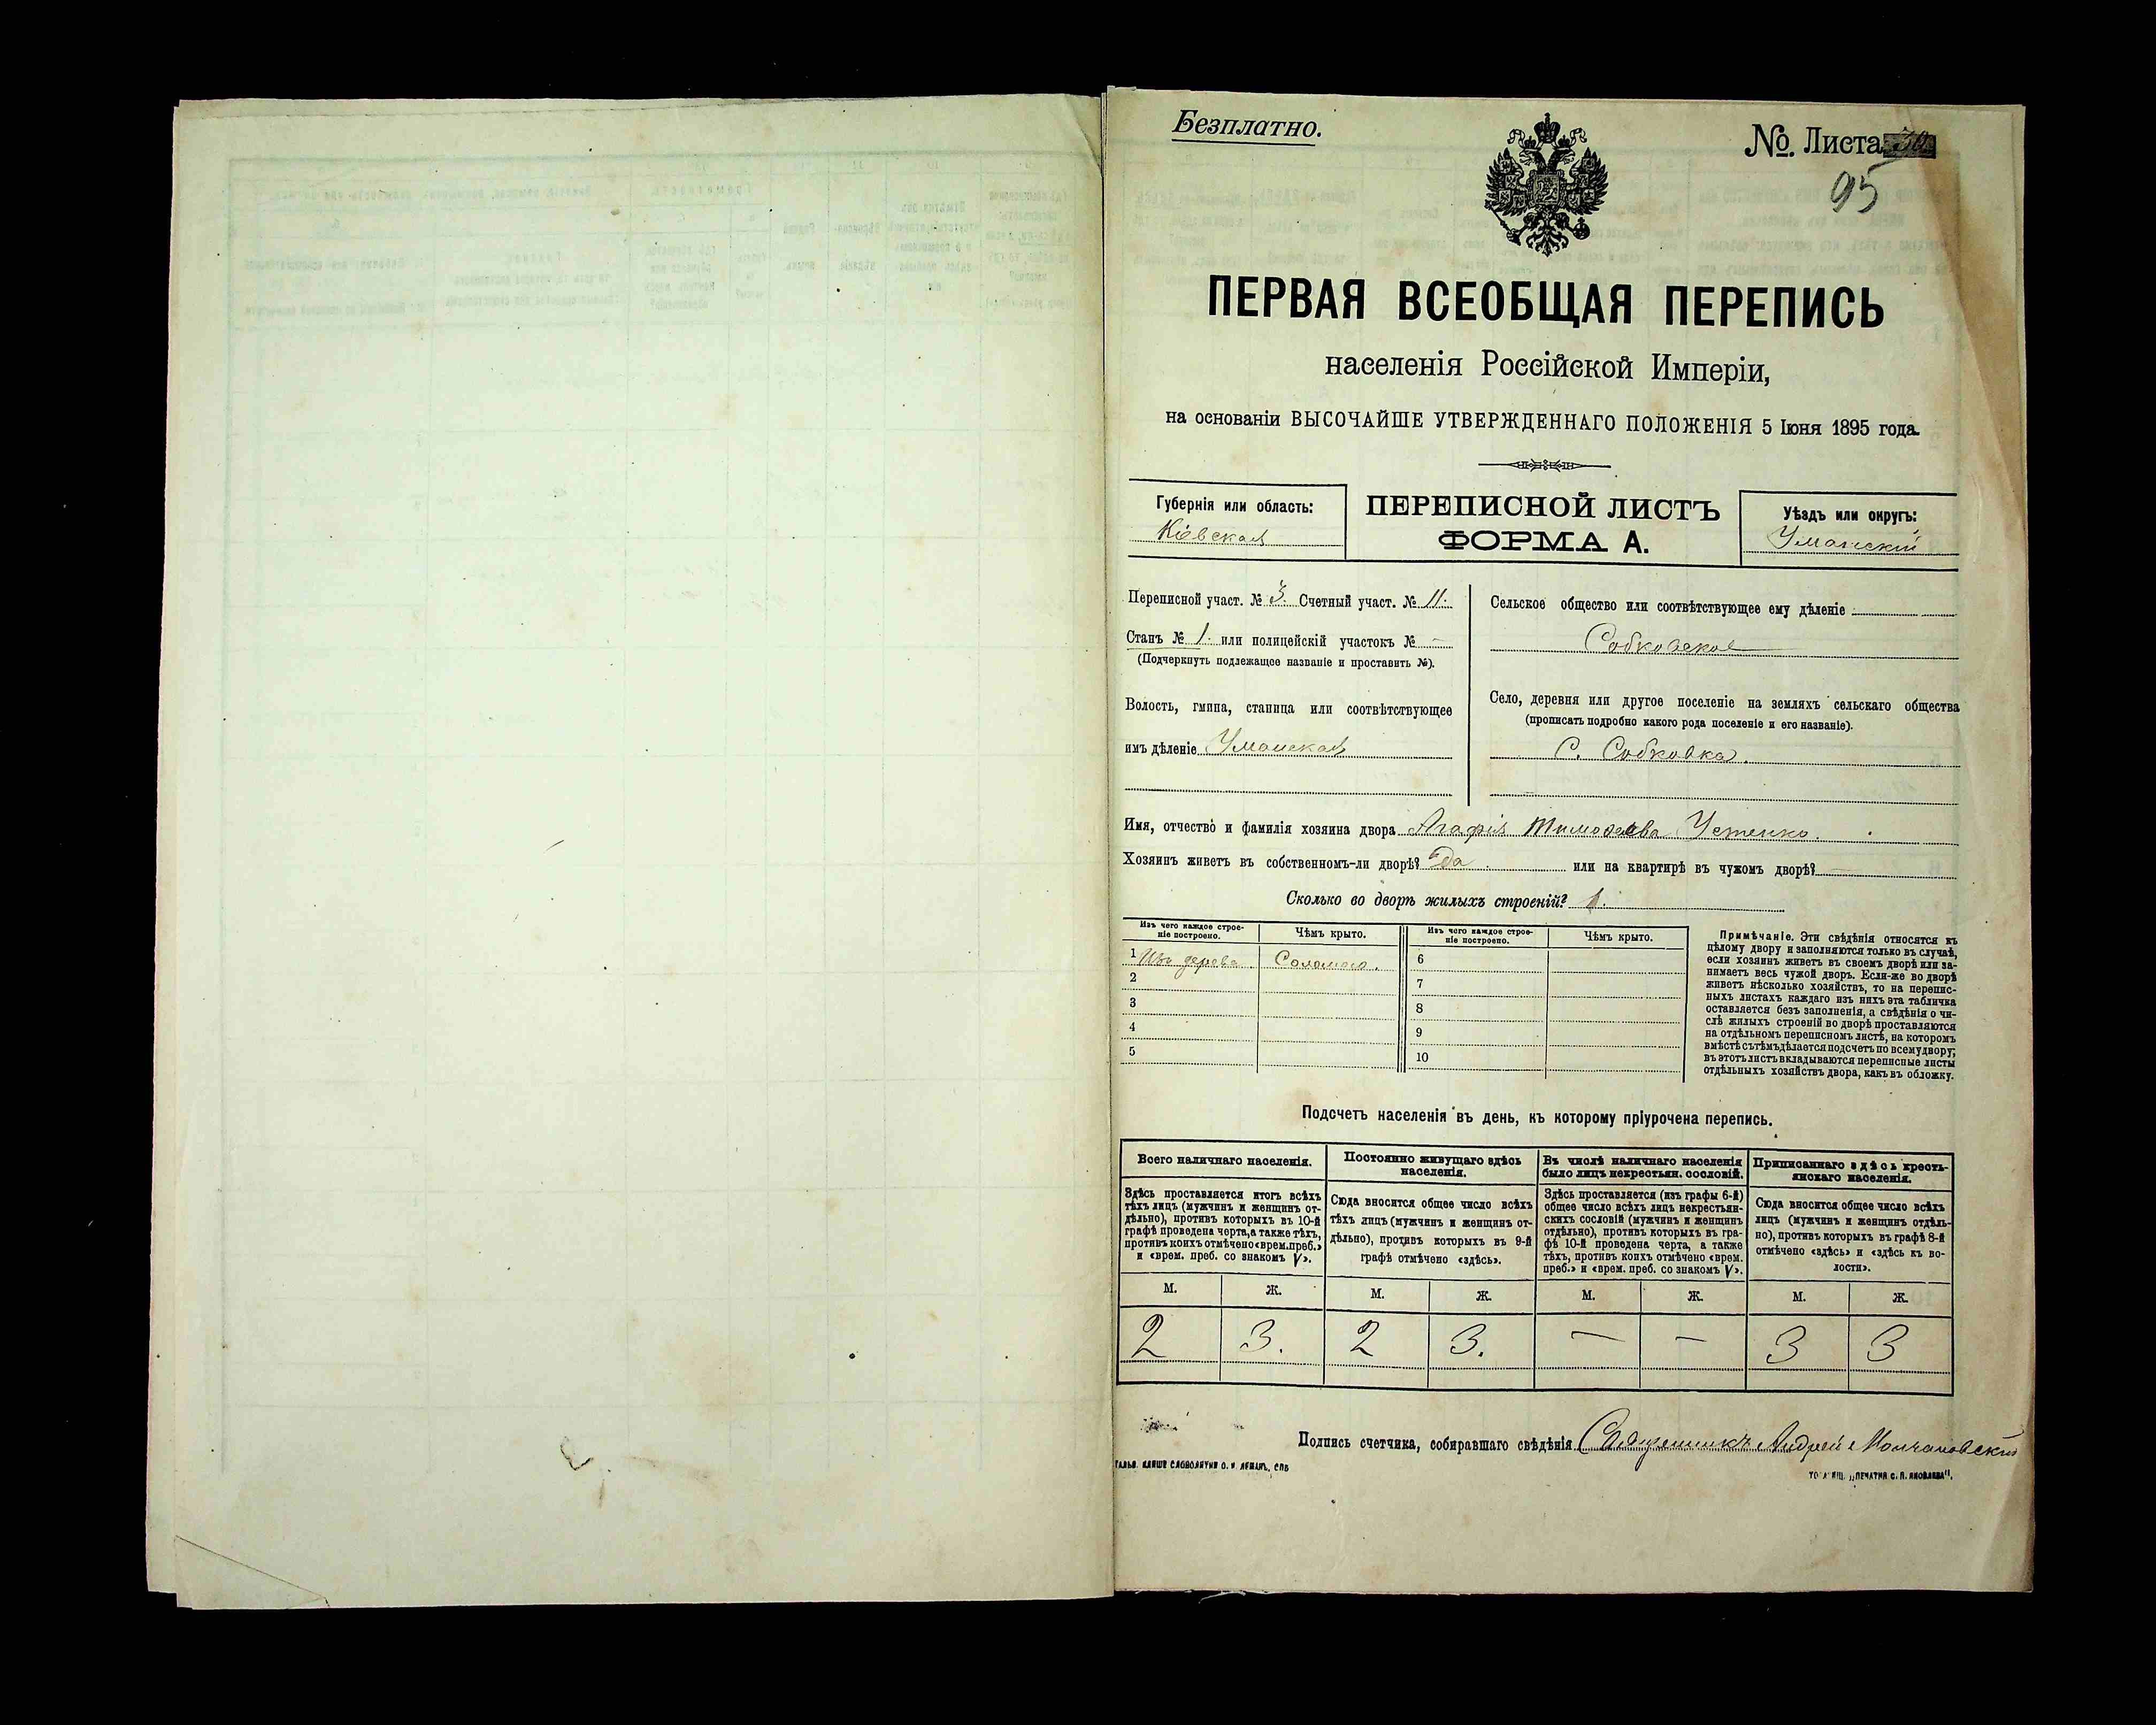 Безплатно.
№. Листа
95
ПЕРВАЯ ВСЕОБЩАЯ ПЕРЕПИСЬ
населенія Россійской Имперіи,
на основаніи ВЫСОЧАЙШЕ УТВЕРЖДЕННАГО ПОЛОЖЕНІЯ 5 Іюня 1895 года.
Губернія или область:
Кіевская
ПЕРЕПИСНОЙ ЛИСТЪ
ФОРМА А.
Уѣздъ или округъ:
Уманскій
Переписной участ. № 3. Счетный участ. № 11.
Станъ № 1. или полицейскій участокъ № —
(Подчеркнуть подлежащее названіе и проставить №).
Волость, гмина, станица или соотвѣтствующее
имъ дѣленіе Уманская
Сельское общество или соотвѣтствующее ему дѣленіе
Собковское
Село, деревня или другое поселеніе на земляхъ сельскаго общества
(прописать подробно какого рода поселеніе и его названіе).
С. Собковка.
Имя, отчество и фамилія хозяина двора Агафія Тимофеева Устенко.
Хозяинъ живетъ въ собственномъ-ли дворѣ? Да. или на квартирѣ въ чужомъ дворѣ? —
Сколько во дворѣ жилыхъ строеній? 1.
Изъ чего каждое строе-
ніе построено.
Чѣмъ крыто.
Изъ чего каждое строе-
ніе построено.
Чѣмъ крыто.
1 Изъ дерева. Соломою. 6
2 7
3 8
4 9
5 10
Примѣчаніе. Эти свѣдѣнія относятся къ
цѣлому двору и заполняются только въ случаѣ,
если хозяинъ живетъ въ своемъ дворѣ или за-
нимаетъ весь чужой дворъ. Если-же во дворѣ
живетъ нѣсколько хозяйствъ, то на перепис-
ныхъ листахъ каждаго изъ нихъ эта табличка
оставляется безъ заполненія, а свѣдѣнія о чи-
слѣ жилыхъ строеній во дворѣ проставляются
на отдѣльномъ переписномъ листѣ, на которомъ
вмѣстѣ съ тѣмъ дѣлается подсчетъ по всему двору;
въ этотъ листъ вкладываются переписные листы
отдѣльныхъ хозяйствъ двора, какъ въ обложку.
Подсчетъ населенія въ день, къ которому пріурочена перепись.
Всего наличнаго населенія.
Здѣсь проставляется итогъ всѣхъ
тѣхъ лицъ (мужчинъ и женщинъ от-
дѣльно), противъ которыхъ въ 10-й
графѣ проведена черта, а также тѣхъ,
противъ коихъ отмѣчено «врем. преб.»
и «врем. преб. со знакомъ V».
Постоянно живущаго здѣсь
населенія.
Сюда вносится общее число всѣхъ
тѣхъ лицъ (мужчинъ и женщинъ от-
дѣльно), противъ которыхъ въ 9-й
графѣ отмѣчено «здѣсь».
Въ числѣ наличнаго населенія
было лицъ некрестьян. сословій.
Здѣсь проставляется (изъ графы 6-й)
общее число всѣхъ лицъ некрестьян-
скихъ сословій (мужчинъ и женщинъ
отдѣльно), противъ которыхъ въ гра-
фѣ 10-й проведена черта, а также
тѣхъ, противъ коихъ отмѣчено «врем.
преб.» и «врем. преб. со знакомъ V».
Приписаннаго здѣсь кресть-
янскаго населенія.
Сюда вносится общее число всѣхъ
лицъ (мужчинъ и женщинъ отдѣль-
но), противъ которыхъ въ графѣ 8-й
отмѣчено «здѣсь» и «здѣсь къ во-
лости».
М. Ж. М. Ж. М. Ж. М. Ж.
2 3. 2 3. — — 3 3
Подпись счетчика, собиравшаго свѣдѣнія Андрей Молчановскій
ГАЛЬВ. КЛИШЕ СЛОВОЛИТНИ О. И. ЛЕМАНЪ, СПБ
ТОВАРИЩ. „ПЕЧАТНЯ С. П. ЯКОВЛЕВА".